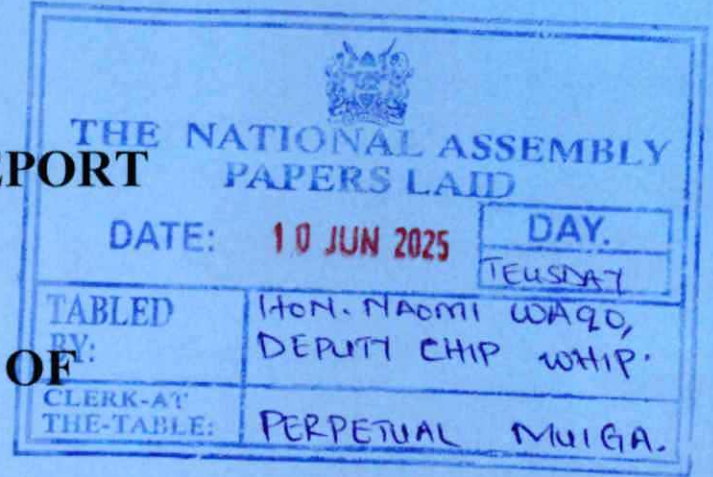 THE NATIONAL ASSEMBLY
PAPERS LAID
EPORT
DATE: 10 JUN 2025 DAY.
TEUSDAY
TABLED BY: HON. NAOMI WAQO,
DEPUTY CHIP WHIP.
OF
CLERK-AT THE-TABLE: PERPETUAL MUIGA.